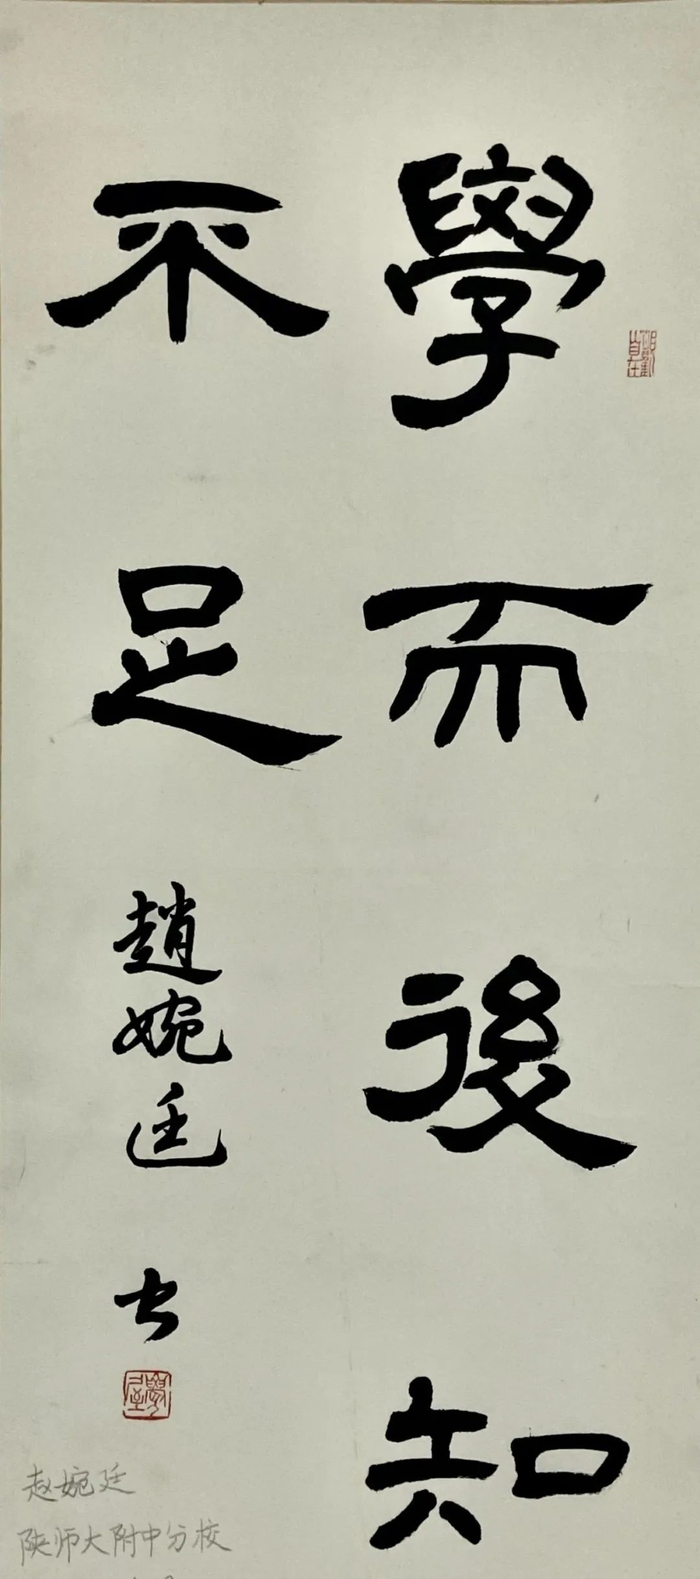 學而後知
不足
趙婉廷书
赵婉廷
陕师大附中分校